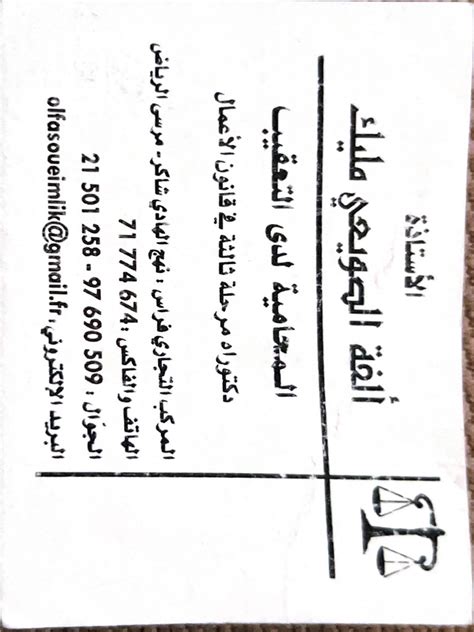 الأستاذة
ألفة الصويعي مليك
المحامية لدى التعقيب
دكتوراه مرحلة ثالثة في قانون الأعمال
المركب التجاري فراس : نهج الهادي شاكر - مرسى الرياض
الهاتف والفاكس : 71 774 674
الجوّال : 21 501 258 - 97 690 509
البريد الالكتروني : olfasoueimlik@gmail.fr